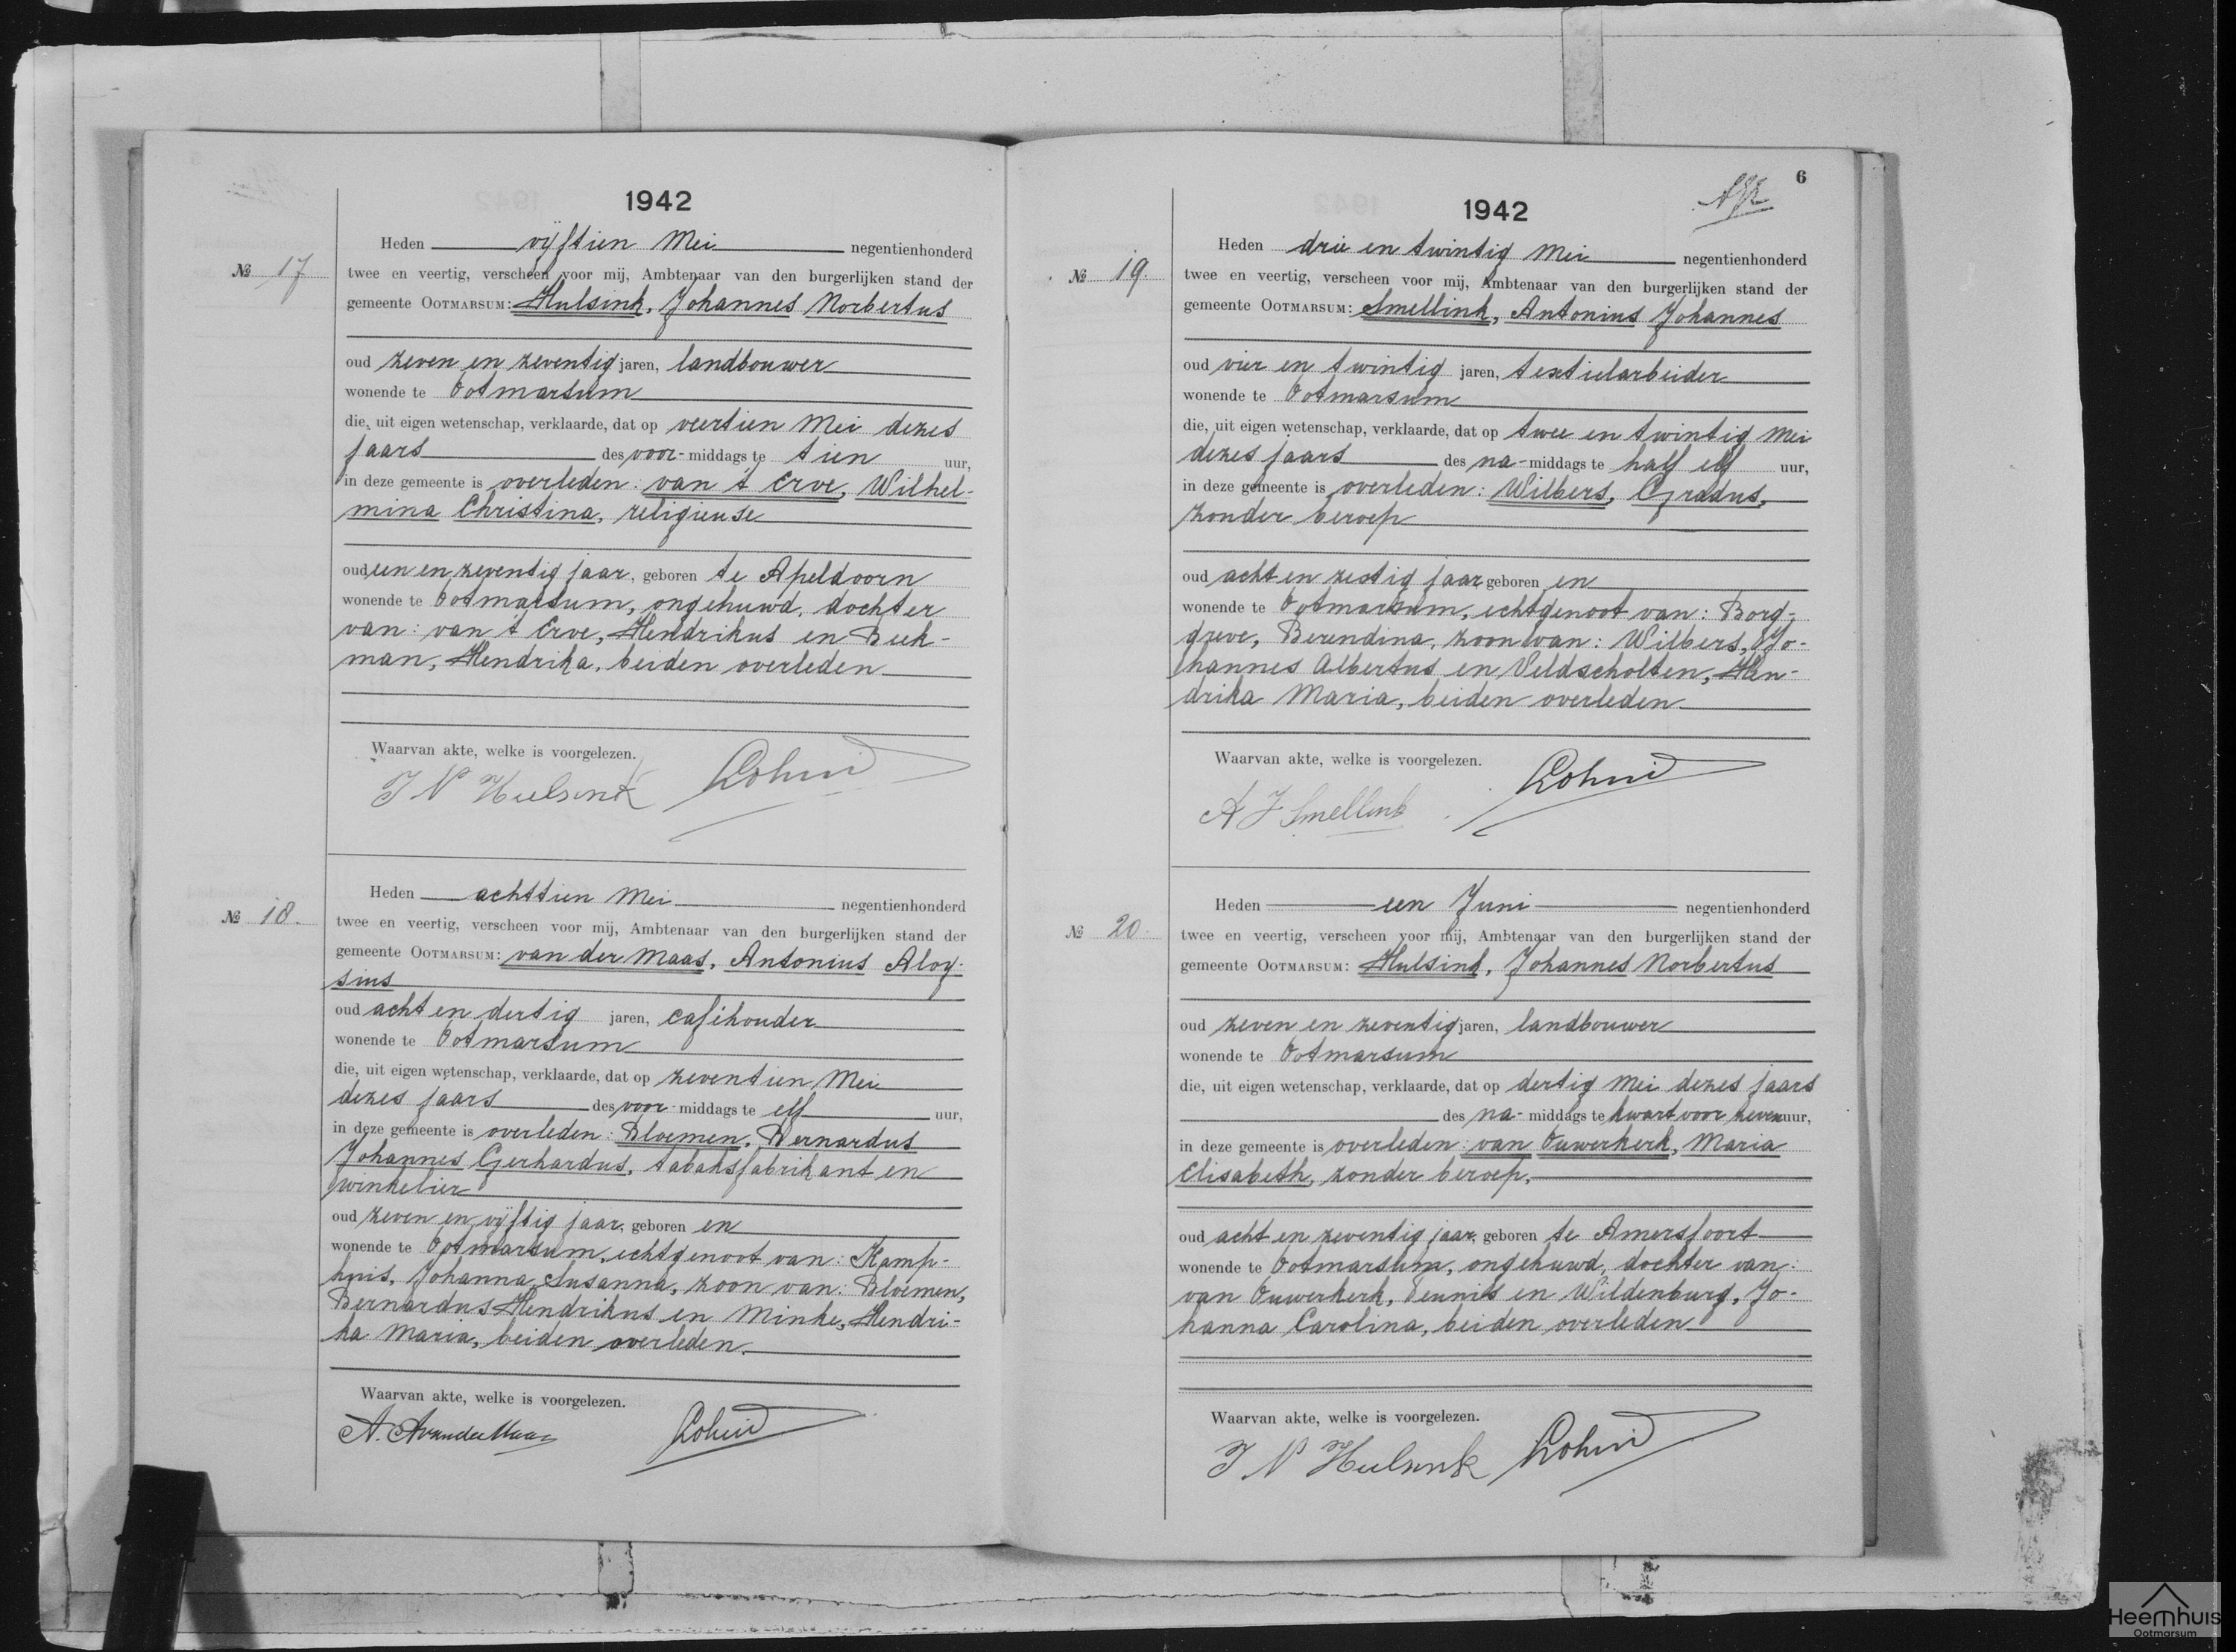 1942
Heden vijftien Mei negentienhonderd
№ 17
twee en veertig, verscheen voor mij, Ambtenaar van den burgerlijken stand der
gemeente OOTMARSUM: Hulsink, Johannes Norbertus
oud zeven en zeventig jaren, landbouwer
wonende te Ootmarsum
die, uit eigen wetenschap, verklaarde, dat op veertien Mei dezes
jaars des voor-middags te tien uur,
in deze gemeente is overleden: van 't Erve, Wilhel-
mina Christina, religieuse
oud een en zeventig jaar, geboren te Apeldoorn
wonende te Ootmarsum, ongehuwd, dochter
van: van 't Erve, Hendrikus en Beek-
man, Hendrika, beiden overleden
Waarvan akte, welke is voorgelezen.
J N Hulsink
Heden achttien Mei negentienhonderd
№ 18.
twee en veertig, verscheen voor mij, Ambtenaar van den burgerlijken stand der
gemeente OOTMARSUM: van der Maas, Antonius Aloy-
sius
oud acht en dertig jaren, caféhouder
wonende te Ootmarsum
die, uit eigen wetenschap, verklaarde, dat op zeventien Mei
dezes jaars des voor-middags te elf uur,
in deze gemeente is overleden: Bloemen, Bernardus
Johannes Gerhardus, tabaksfabrikant en
winkelier
oud zeven en vijftig jaar, geboren en
wonende te Ootmarsum, echtgenoot van: Kamp-
huis, Johanna Susanna, zoon van: Bloemen,
Bernardus Hendrikus en Minke, Hendri-
ka Maria, beiden overleden.
Waarvan akte, welke is voorgelezen.
A. A van der Maas
6
1942
Heden drie en twintig Mei negentienhonderd
№ 19.
twee en veertig, verscheen voor mij, Ambtenaar van den burgerlijken stand der
gemeente OOTMARSUM: Smellink, Antonius Johannes
oud vier en twintig jaren, textielarbeider
wonende te Ootmarsum
die, uit eigen wetenschap, verklaarde, dat op twee en twintig Mei
dezes jaars des na-middags te half elf uur,
in deze gemeente is overleden: Wilbers, Gradus,
zonder beroep
oud acht en zestig jaar geboren en
wonende te Ootmarsum, echtgenoot van: Borg-
greve, Berendina, zoon van: Wilbers, Jo-
hannes Albertus en Veldscholten, Hen-
drika Maria, beiden overleden
Waarvan akte, welke is voorgelezen.
A J Smellink
Heden een Juni negentienhonderd
№ 20.
twee en veertig, verscheen voor mij, Ambtenaar van den burgerlijken stand der
gemeente OOTMARSUM: Hulsink, Johannes Norbertus
oud zeven en zeventig jaren, landbouwer
wonende te Ootmarsum
die, uit eigen wetenschap, verklaarde, dat op dertig Mei dezes jaars
des na-middags te kwart voor zeven uur,
in deze gemeente is overleden: van Ouwerkerk, Maria
Elisabeth, zonder beroep.
oud acht en zeventig jaar, geboren te Amersfoort
wonende te Ootmarsum, ongehuwd, dochter van:
van Ouwerkerk, Teunis en Wildenburg, Jo-
hanna Carolina, beiden overleden
Waarvan akte, welke is voorgelezen.
J N Hulsink
Heemhuis
Ootmarsum